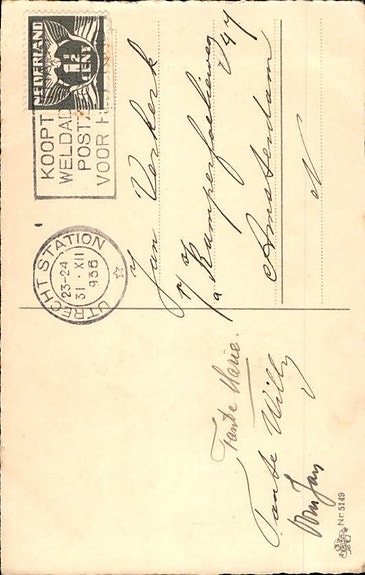 NEDERLAND
1½
CENT
KOOPT
WELDAD
POSTZ
VOOR H
UTRECHT STATION
23-24
31 · XII
1936
Jan Verkerk
Amsterdam
Tante Marie.
Tante Willy
Nr. 5149